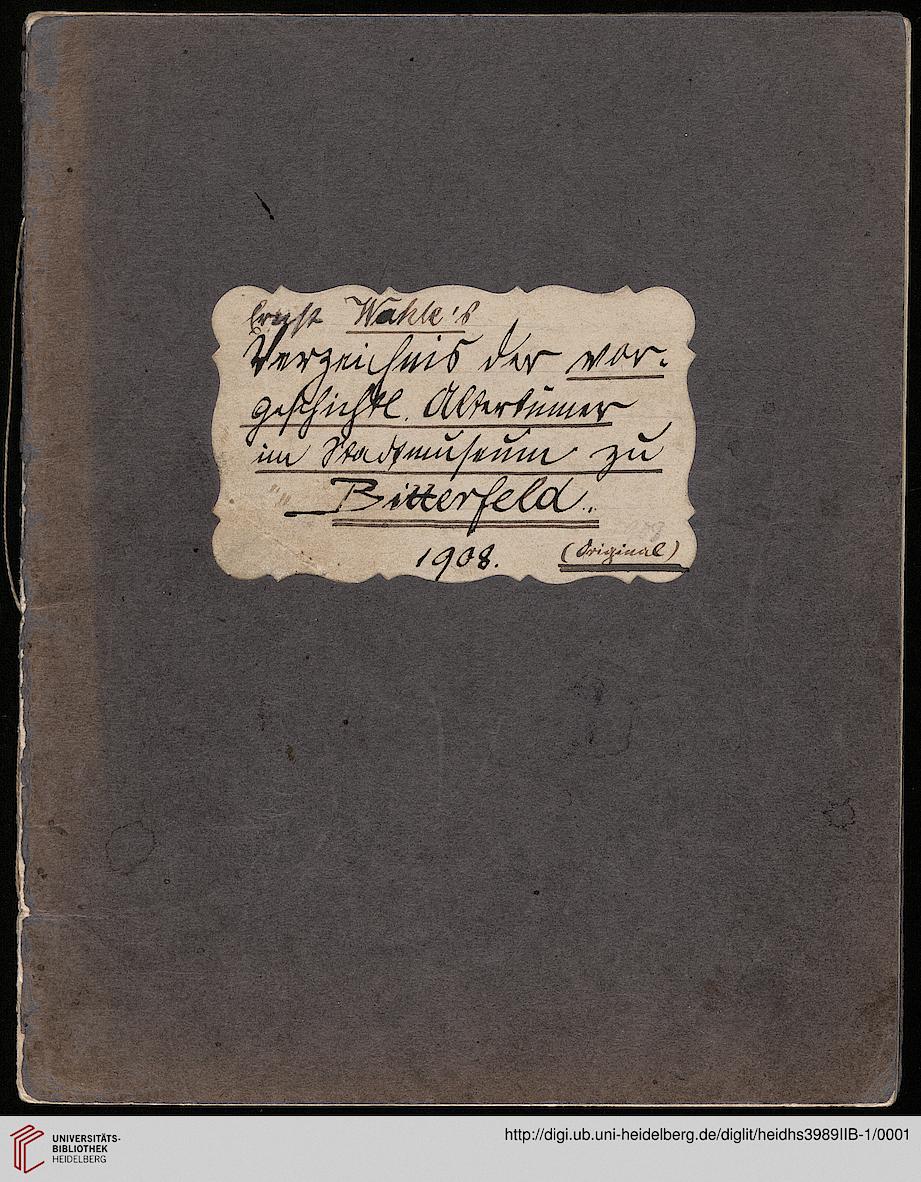 Ernst Wahle's
Verzeichnis der vor-
geschichtl. Altertümer
im Stadtmuseum zu
"Bitterfeld".
1908.
(Original)
UNIVERSITÄTS-
BIBLIOTHEK
HEIDELBERG
http://digi.ub.uni-heidelberg.de/diglit/heidhs3989IIB-1/0001